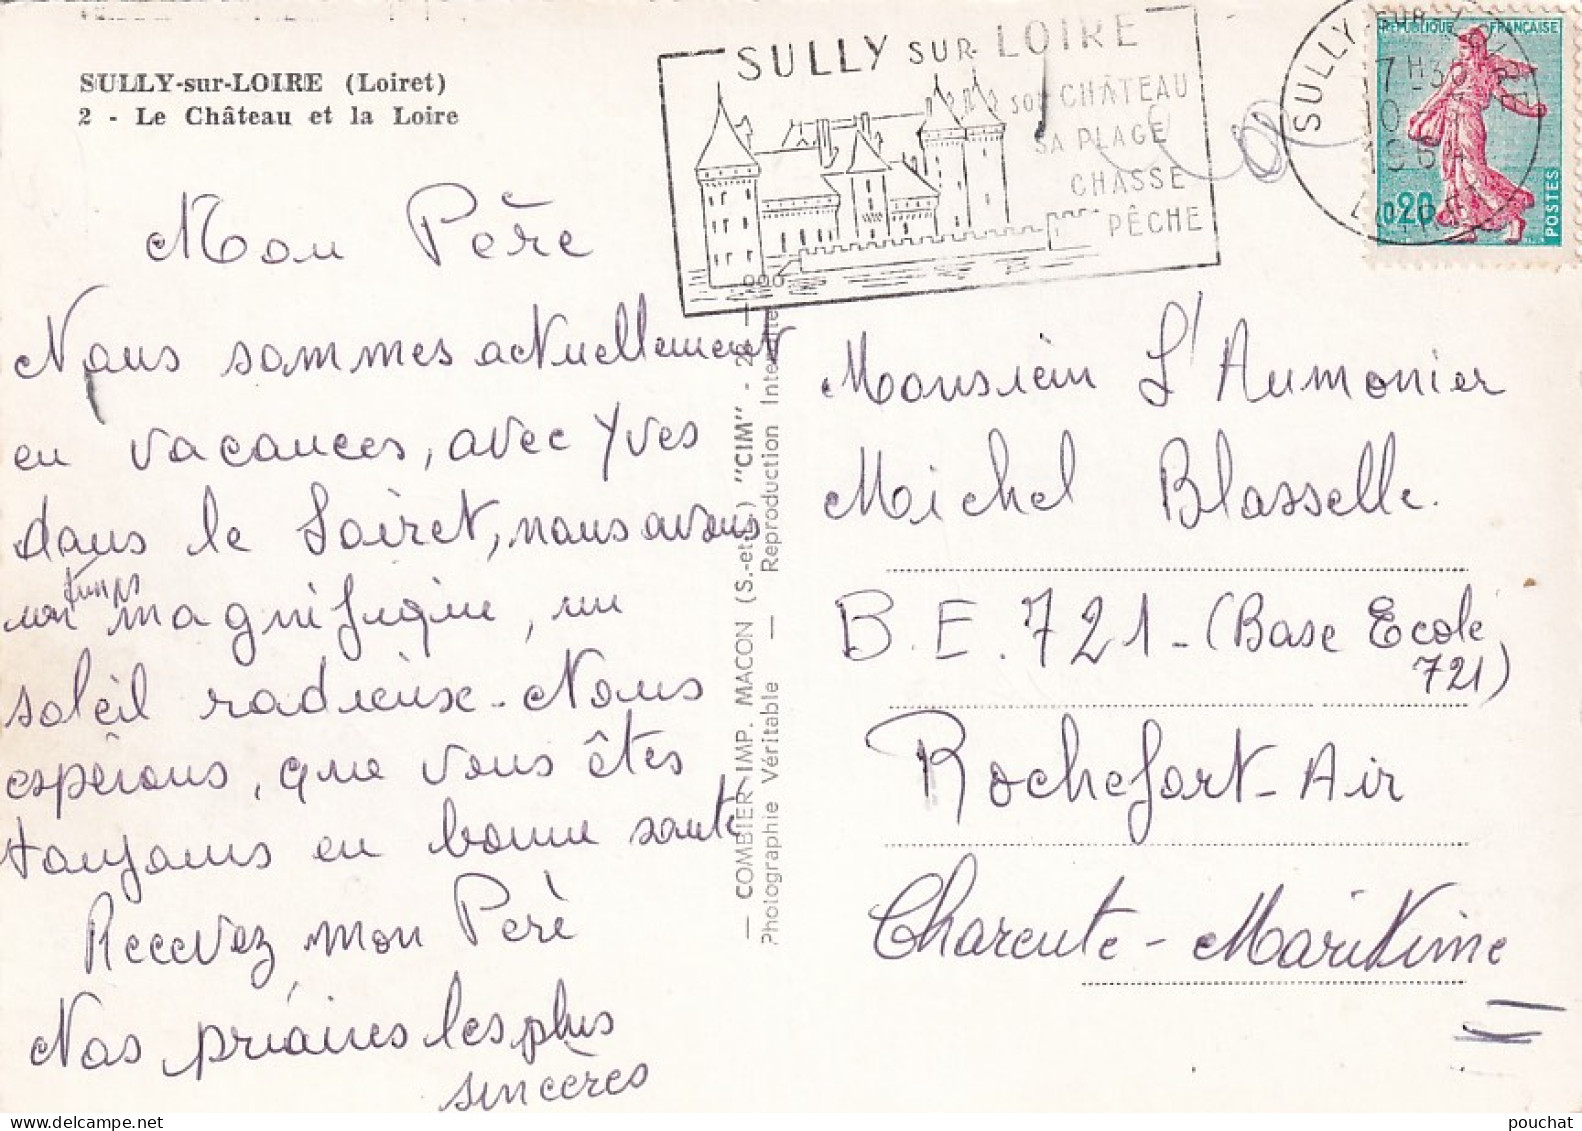 SULLY-sur-LOIRE (Loiret)
2 - Le Château et la Loire
SULLY SUR LOIRE
SON CHÂTEAU
SA PLAGE
CHASSE
PÊCHE
SULLY-SUR-LOIRE
7H30
LOIRET
REPUBLIQUE FRANÇAISE
0,20
POSTES
Mon Père
Nous sommes actuellement
en vacances, avec Yves
dans le Loiret, nous avons
un temps magnifique, un
soleil radieux. Nous
espérons, que vous êtes
toujours en bonne santé
Recevez mon Père
Nos prières les plus
sincères
— COMBIER IMP. MACON (S.-et-L.) "CIM" -
Photographie Véritable — Reproduction Interdite
Monsieur L'Aumonier
Michel Blasselle.
B.E. 721 - (Base Ecole
721)
Rochefort-Air
Charente-Maritime
pouchat